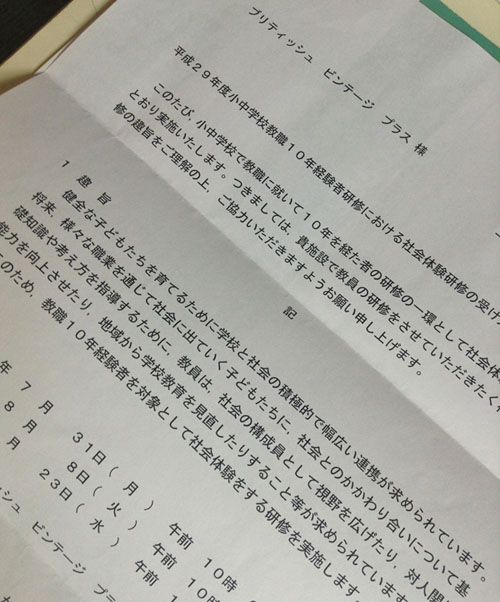 ブリティッシュ ビンテージ プラス 様
平成２９年度小中学校教職１０年経験者研修における社会体験研修の受け
このたび，小中学校で教職に就いて１０年を経た者の研修の一環として社会体
とおり実施いたします。つきましては，貴施設で教員の研修をさせていただきたく
修の趣旨をご理解の上，ご協力いただきますようお願い申し上げます。
記
１ 趣 旨
健全な子どもたちを育てるために学校と社会の積極的で幅広い連携が求められています。
将来，様々な職業を通じて社会に出ていく子どもたちに，社会とのかかわり合いについて基
礎知識や考え方を指導するために，教員は，社会の構成員として視野を広げたり，対人関
能力を向上させたり，地域から学校教育を見直したりすること等が求められています
このため，教職１０年経験者を対象として社会体験をする研修を実施します
年 ７ 月 ３１日（ 月 ） 午前 １０時
８ 月 ８日（ 火 ） 午前
月 ２３日（ 水 ） 午前
ッシュ ビンテージ プ